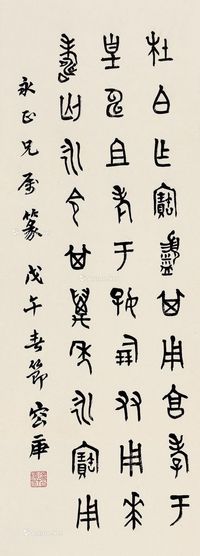 杜白乍寶盨其用享孝于
皇申且考于好倗友用𠦪
壽匄永令其萬年永寶用
永正兄属篆 戊午春節 容庚